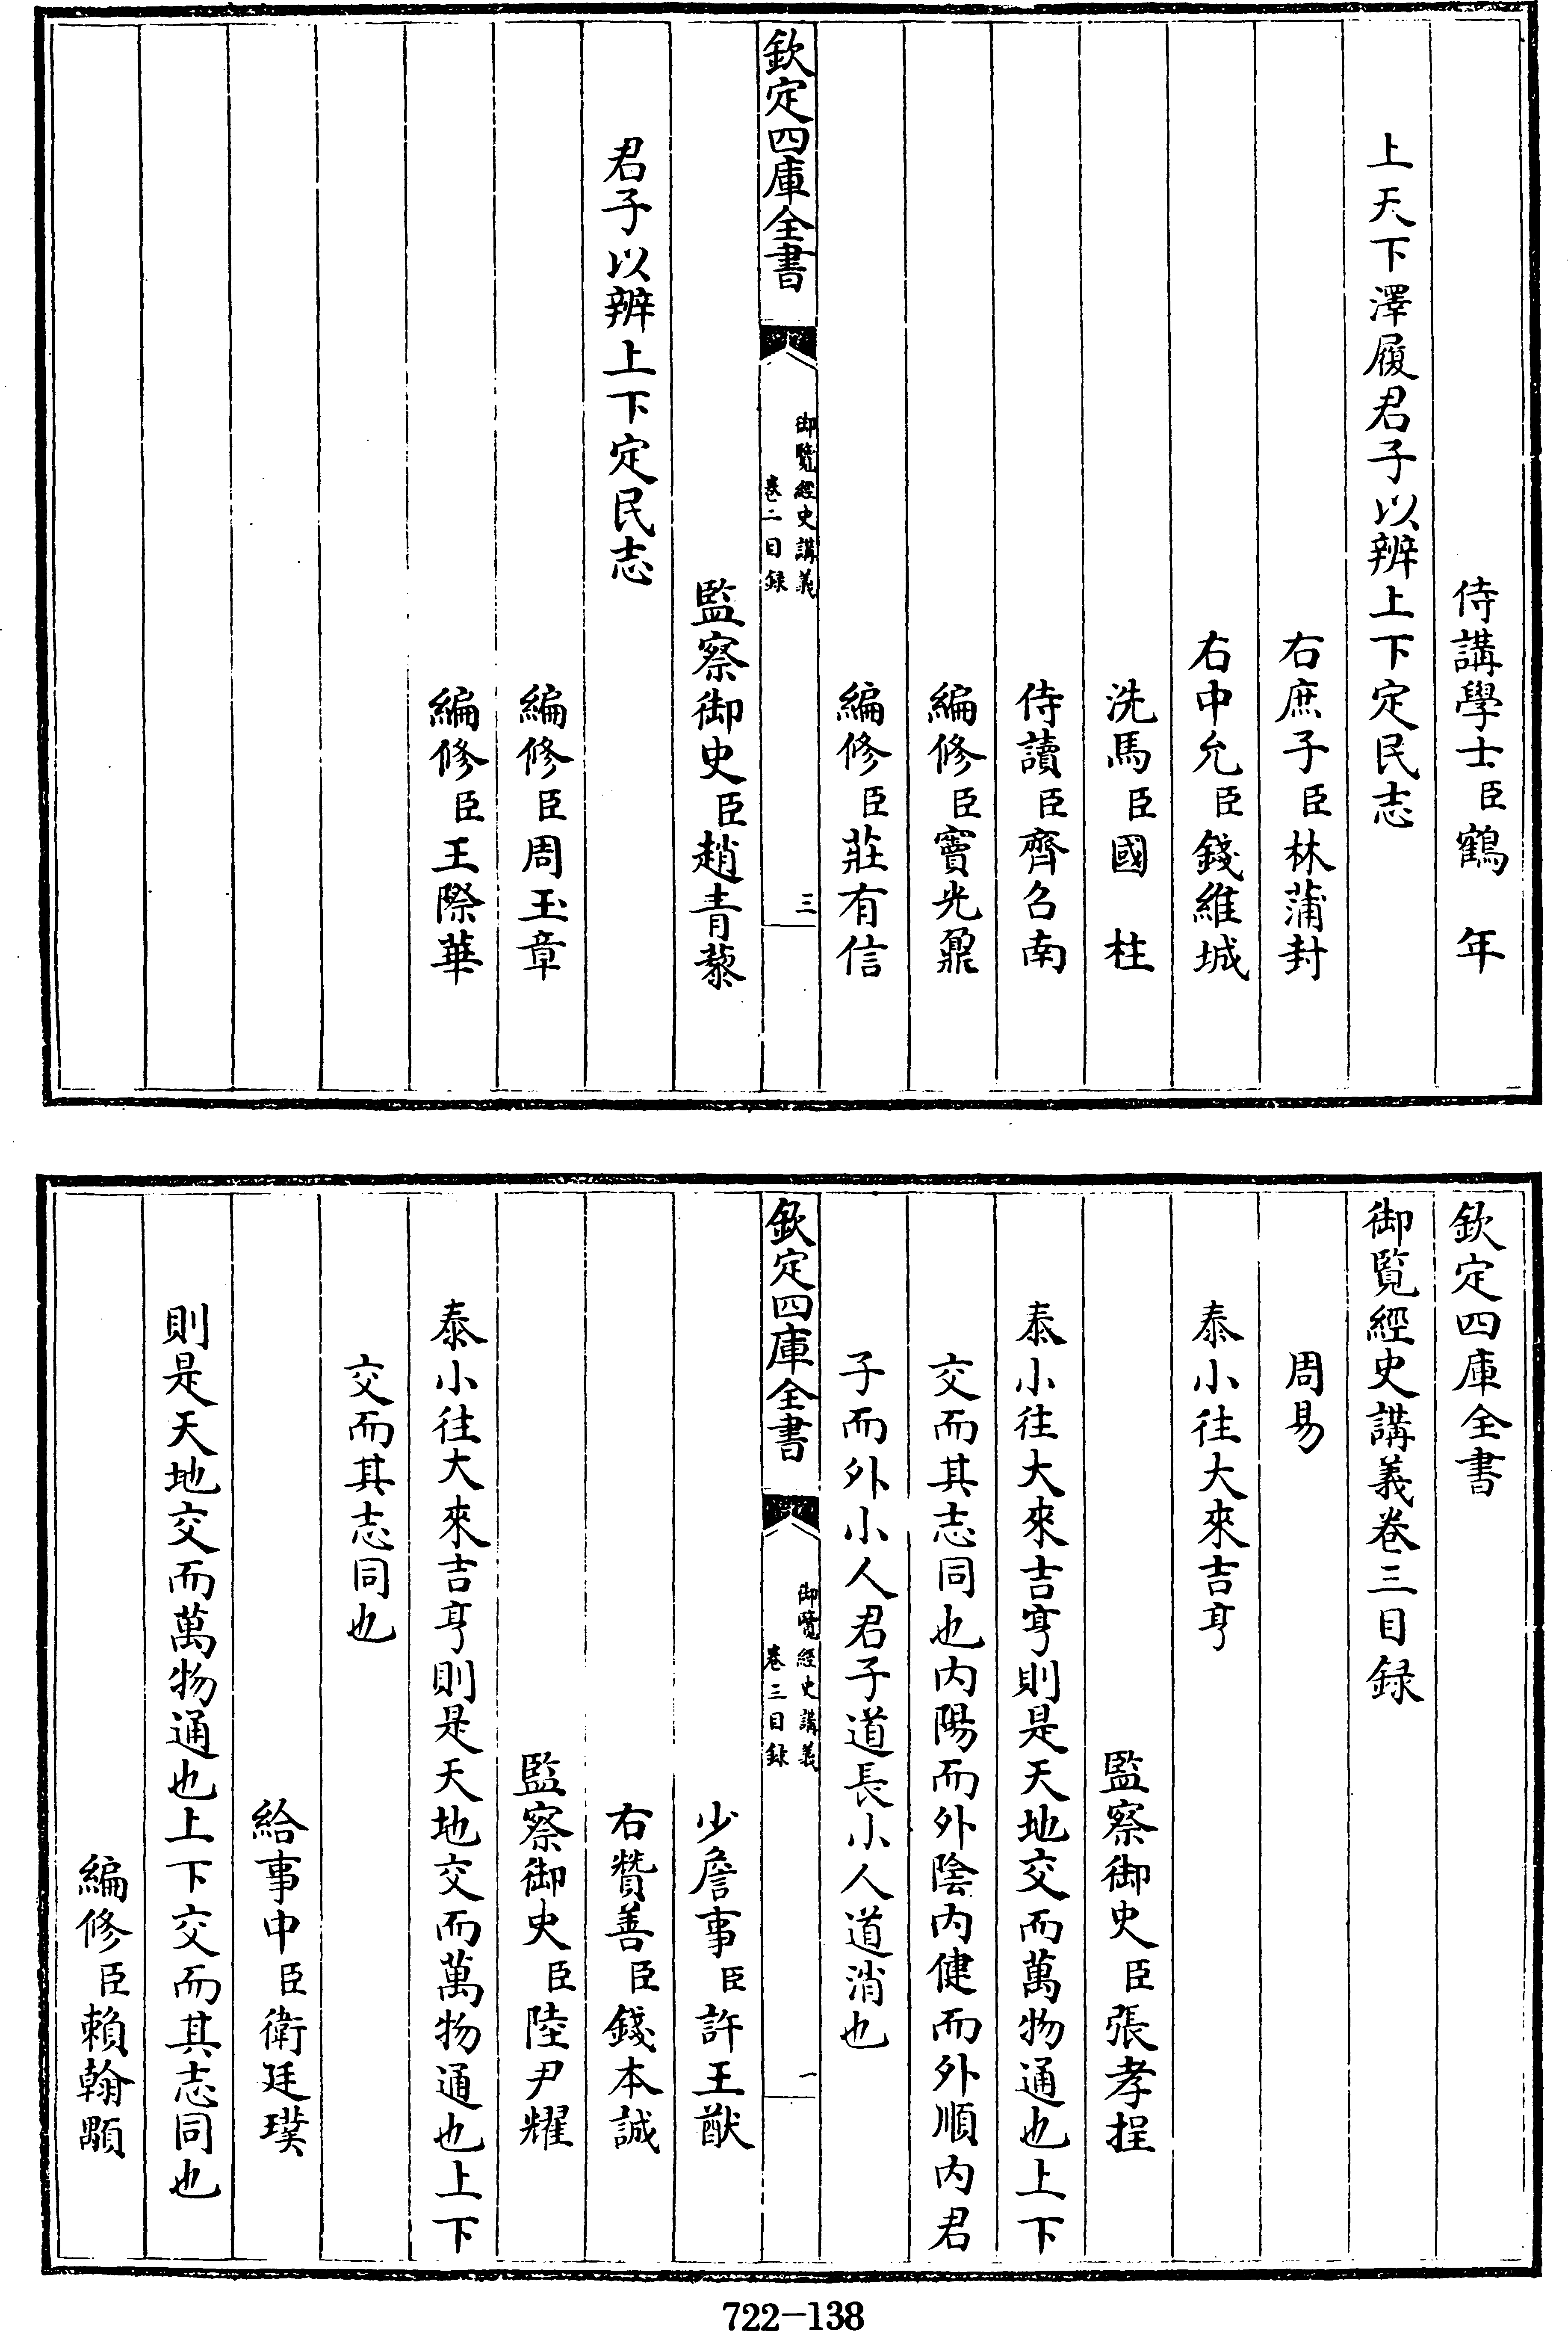 侍講學士臣鶴　年
上天下澤履君子以辨上下定民志
右庶子臣林蒲封
右中允臣錢維城
洗馬臣國　柱
侍讀臣齊召南
編修臣竇光鼐
編修臣莊有信
欽定四庫全書
御覽經史講義
卷二目録
三
監察御史臣趙青藜
君子以辨上下定民志
編修臣周玉章
編修臣王際華
欽定四庫全書
御覽經史講義卷三目録
周易
泰小往大來吉亨
監察御史臣張孝捏
泰小往大來吉亨則是天地交而萬物通也上下
交而其志同也内陽而外陰内健而外順内君
子而外小人君子道長小人道消也
欽定四庫全書
御覽經史講義
卷三目録
一
少詹事臣許王猷
右贊善臣錢本誠
監察御史臣陸尹耀
泰小往大來吉亨則是天地交而萬物通也上下
交而其志同也
給事中臣衛廷璞
則是天地交而萬物通也上下交而其志同也
編修臣賴翰顒
722-138